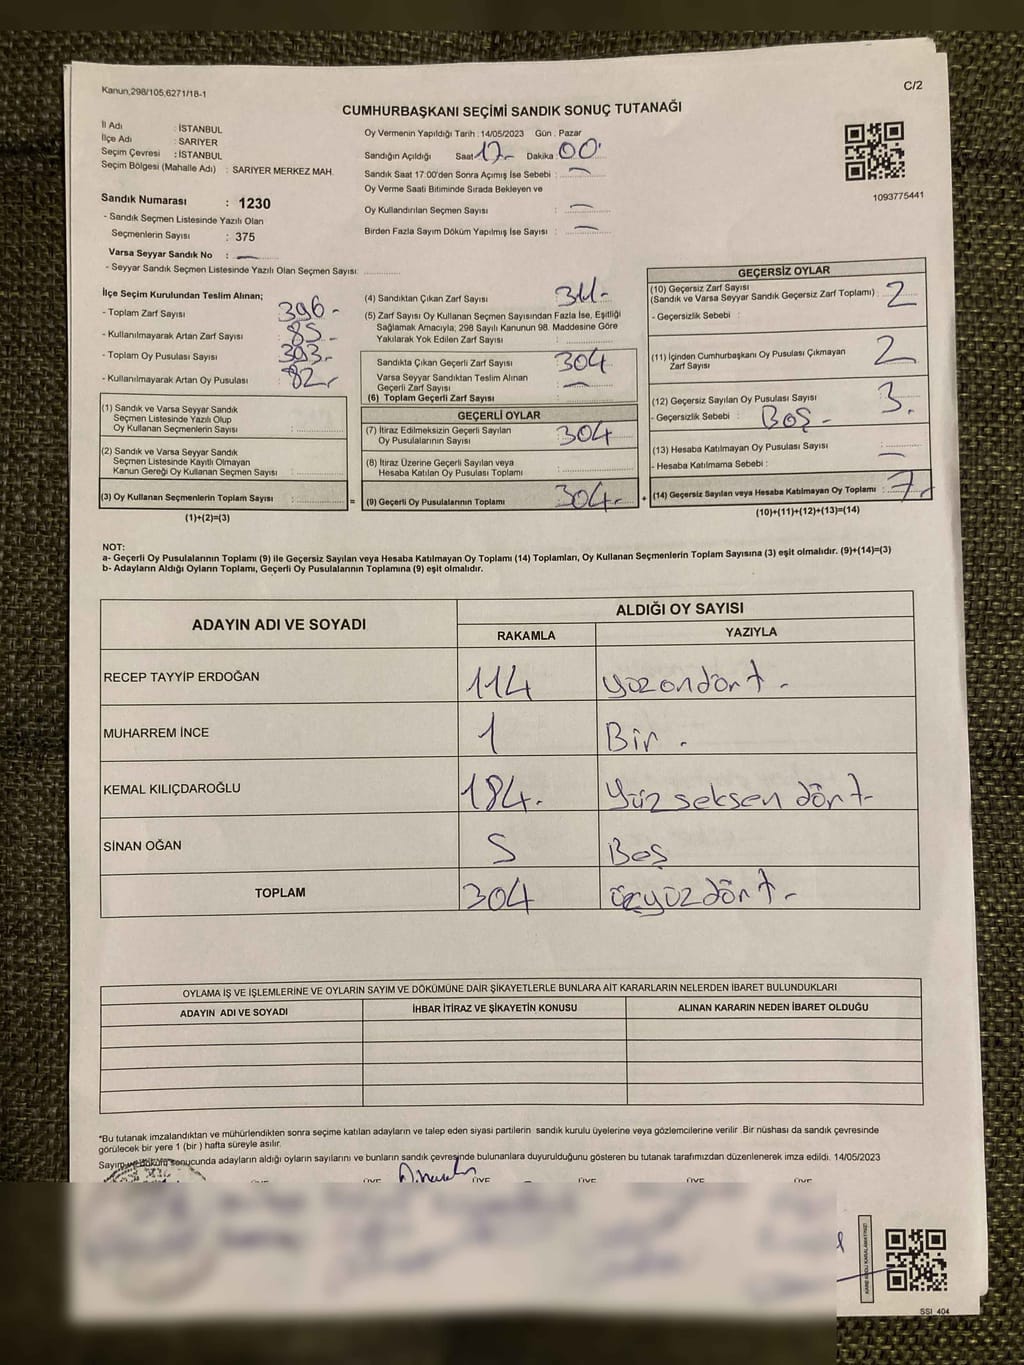 Kanun,298/105,6271/18-1
C/2
CUMHURBAŞKANI SEÇİMİ SANDIK SONUÇ TUTANAĞI
İl Adı : İSTANBUL
İlçe Adı : SARIYER
Seçim Çevresi : İSTANBUL
Seçim Bölgesi (Mahalle Adı) : SARIYER MERKEZ MAH.
Sandık Numarası : 1230
- Sandık Seçmen Listesinde Yazılı Olan
Seçmenlerin Sayısı : 375
Varsa Seyyar Sandık No : —
- Seyyar Sandık Seçmen Listesinde Yazılı Olan Seçmen Sayısı:
Oy Vermenin Yapıldığı Tarih : 14/05/2023 Gün : Pazar
Sandığın Açıldığı Saat 17- Dakika : 00'
Sandık Saat 17:00'den Sonra Açımış İse Sebebi : —
Oy Verme Saati Bitiminde Sırada Bekleyen ve
Oy Kullandırılan Seçmen Sayısı : —
Birden Fazla Sayım Döküm Yapılmış İse Sayısı : —
1093775441
İlçe Seçim Kurulundan Teslim Alınan;
- Toplam Zarf Sayısı : 396-
- Kullanılmayarak Artan Zarf Sayısı : 85-
- Toplam Oy Pusulası Sayısı : 393-
- Kullanılmayarak Artan Oy Pusulası : 82-
(1) Sandık ve Varsa Seyyar Sandık
Seçmen Listesinde Yazılı Olup
Oy Kullanan Seçmenlerin Sayısı :
(2) Sandık ve Varsa Seyyar Sandık
Seçmen Listesinde Kayıtlı Olmayan
Kanun Gereği Oy Kullanan Seçmen Sayısı :
(3) Oy Kullanan Seçmenlerin Toplam Sayısı :
(1)+(2)=(3)
=
(4) Sandıktan Çıkan Zarf Sayısı : 311-
(5) Zarf Sayısı Oy Kullanan Seçmen Sayısından Fazla İse, Eşitliği
Sağlamak Amacıyla; 298 Sayılı Kanunun 98. Maddesine Göre
Yakılarak Yok Edilen Zarf Sayısı :
Sandıkta Çıkan Geçerli Zarf Sayısı : 304
Varsa Seyyar Sandıktan Teslim Alınan
Geçerli Zarf Sayısı : —
(6) Toplam Geçerli Zarf Sayısı :
GEÇERLİ OYLAR
(7) İtiraz Edilmeksizin Geçerli Sayılan
Oy Pusulalarının Sayısı : 304
(8) İtiraz Üzerine Geçerli Sayılan veya
Hesaba Katılan Oy Pusulası Toplamı :
(9) Geçerli Oy Pusulalarının Toplamı : 304-
+
GEÇERSİZ OYLAR
(10) Geçersiz Zarf Sayısı
(Sandık ve Varsa Seyyar Sandık Geçersiz Zarf Toplamı) : 2
- Geçersizlik Sebebi :
(11) İçinden Cumhurbaşkanı Oy Pusulası Çıkmayan
Zarf Sayısı : 2
(12) Geçersiz Sayılan Oy Pusulası Sayısı : 3.
- Geçersizlik Sebebi : BOŞ -
(13) Hesaba Katılmayan Oy Pusulası Sayısı : —
- Hesaba Katılmama Sebebi :
(14) Geçersiz Sayılan veya Hesaba Katılmayan Oy Toplamı : 7-
(10)+(11)+(12)+(13)=(14)
NOT:
a- Geçerli Oy Pusulalarının Toplamı (9) ile Geçersiz Sayılan veya Hesaba Katılmayan Oy Toplamı (14) Toplamları, Oy Kullanan Seçmenlerin Toplam Sayısına (3) eşit olmalıdır. (9)+(14)=(3)
b- Adayların Aldığı Oyların Toplamı, Geçerli Oy Pusulalarının Toplamına (9) eşit olmalıdır.
ADAYIN ADI VE SOYADI
ALDIĞI OY SAYISI
RAKAMLA YAZIYLA
RECEP TAYYİP ERDOĞAN 114 yüzondört -
MUHARREM İNCE 1 Bir .
KEMAL KILIÇDAROĞLU 184. Yüz seksen dört-
SİNAN OĞAN 5 Beş
TOPLAM 304 üçyüzdört -
OYLAMA İŞ VE İŞLEMLERİNE VE OYLARIN SAYIM VE DÖKÜMÜNE DAİR ŞİKAYETLERLE BUNLARA AİT KARARLARIN NELERDEN İBARET BULUNDUKLARI
ADAYIN ADI VE SOYADI İHBAR İTİRAZ VE ŞİKAYETİN KONUSU ALINAN KARARIN NEDEN İBARET OLDUĞU
*Bu tutanak imzalandıktan ve mühürlendikten sonra seçime katılan adayların ve talep eden siyasi partilerin sandık kurulu üyelerine veya gözlemcilerine verilir .Bir nüshası da sandık çevresinde
görülecek bir yere 1 (bir ) hafta süreyle asılır.
Sayım ve döküm sonucunda adayların aldığı oyların sayılarını ve bunların sandık çevresinde bulunanlara duyurulduğunu gösteren bu tutanak tarafımızdan düzenlenerek imza edildi. 14/05/2023
ÜYE ÜYE ÜYE ÜYE ÜYE
KARE KODU KARALAMAYINIZ!
SSI_404